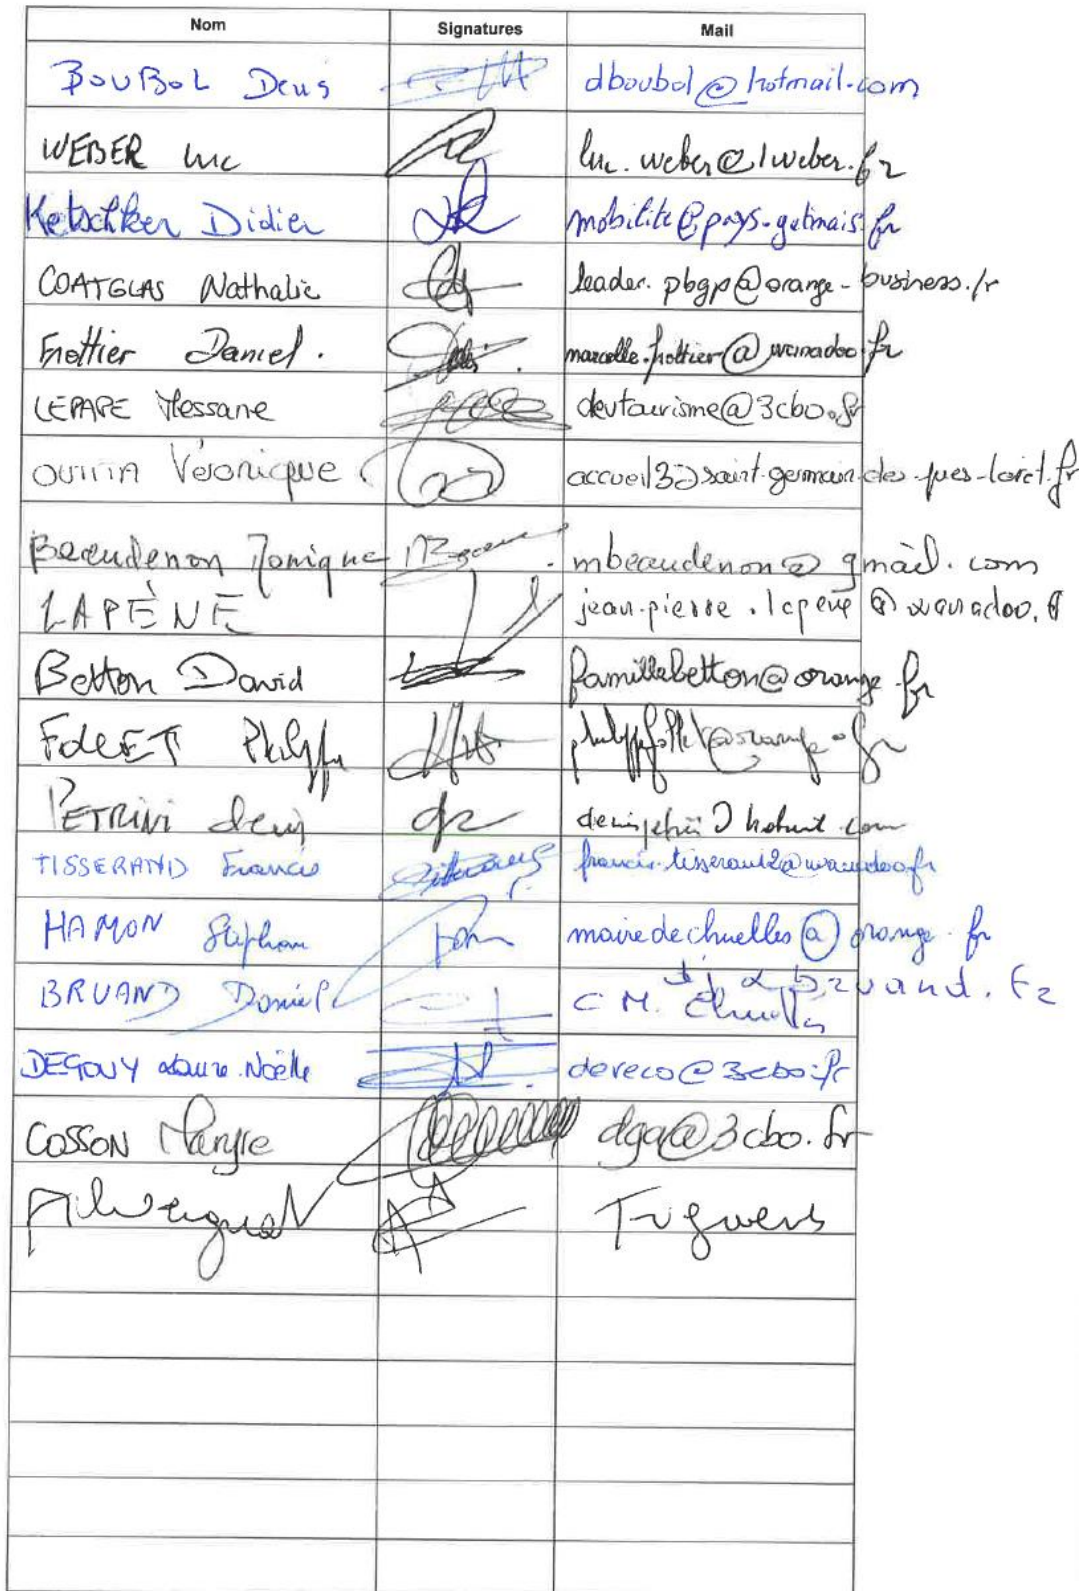 Nom Signatures Mail
BOUBOL Denis dboubol@hotmail.com
WEBER Luc luc.weber@lweber.fr
Didier mobilite@pays-gatinais.fr
COATGLAS Nathalie leader.pbgp@orange-business.fr
Frottier Daniel. marcelle.frottier@wanadoo.fr
LEPAPE Messane devtourisme@3cbo.fr
Véronique accueil3@saint-germain-des-pres-loiret.fr
Beaudenon Monique mbeaudenon@gmail.com
LAPÈNE jean-pierre.lapene@wanadoo.fr
Betton David famillebetton@orange.fr
FOLLET Philippe
PETRINI denis
TISSERAND Francis francis.tisserand2@wanadoo.fr
HAMON Stephan mairedechuelles@orange.fr
BRUAND Daniel bruand.fr
C M. Chuelles
DEGOUY Laure-Noëlle deveco@3cbo.fr
COSSON Maryse dga@3cbo.fr